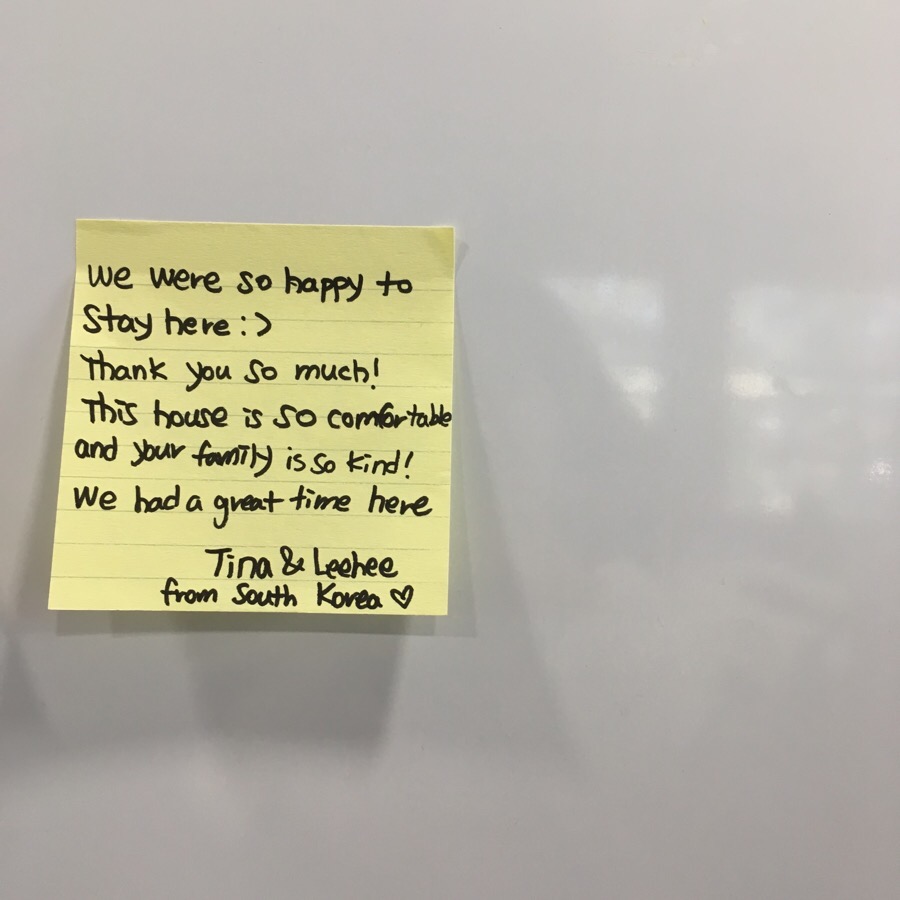 We were so happy to
Stay here :>
Thank you so much!
This house is so comfortable
and your family is so kind!
We had a great time here
Tina & Leehee
from South Korea ♡